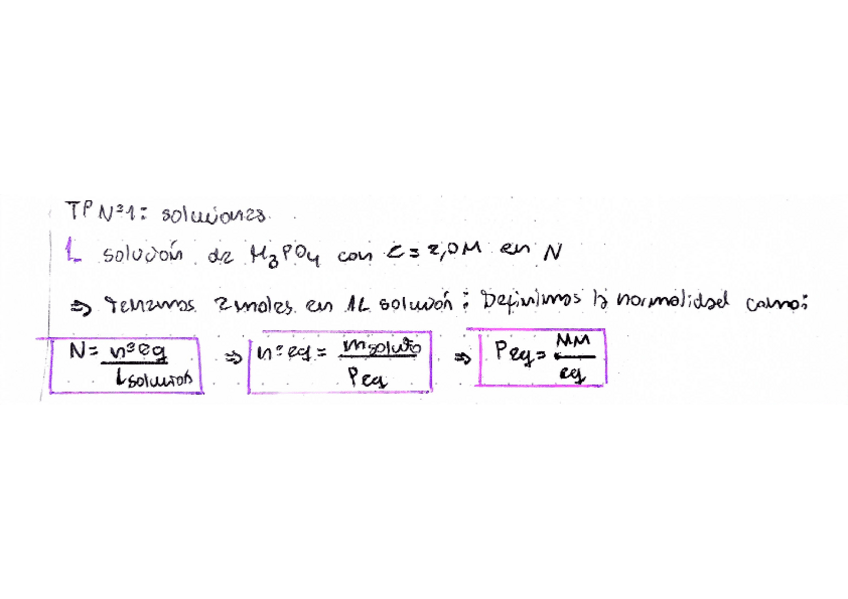 TP N°1: soluciones.
1 solución de H3PO4 con C=2,0M en N
⇒ Tenemos 2 moles en 1L solución: Definimos la normalidad como:
N = n°eq / Lsolución ⇒ n°eq = msoluto / Peq ⇒ Peq = MM / eq